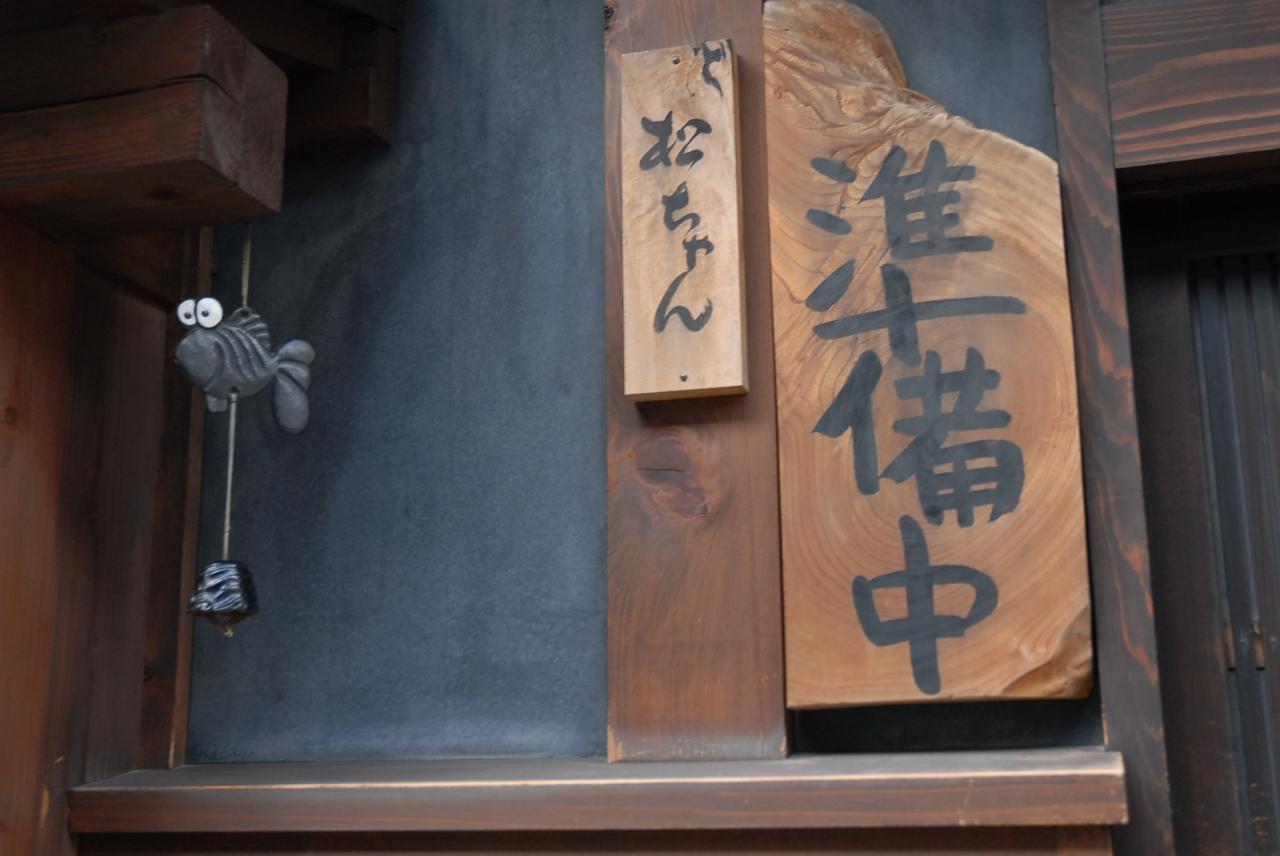 準備中
松ちゃん